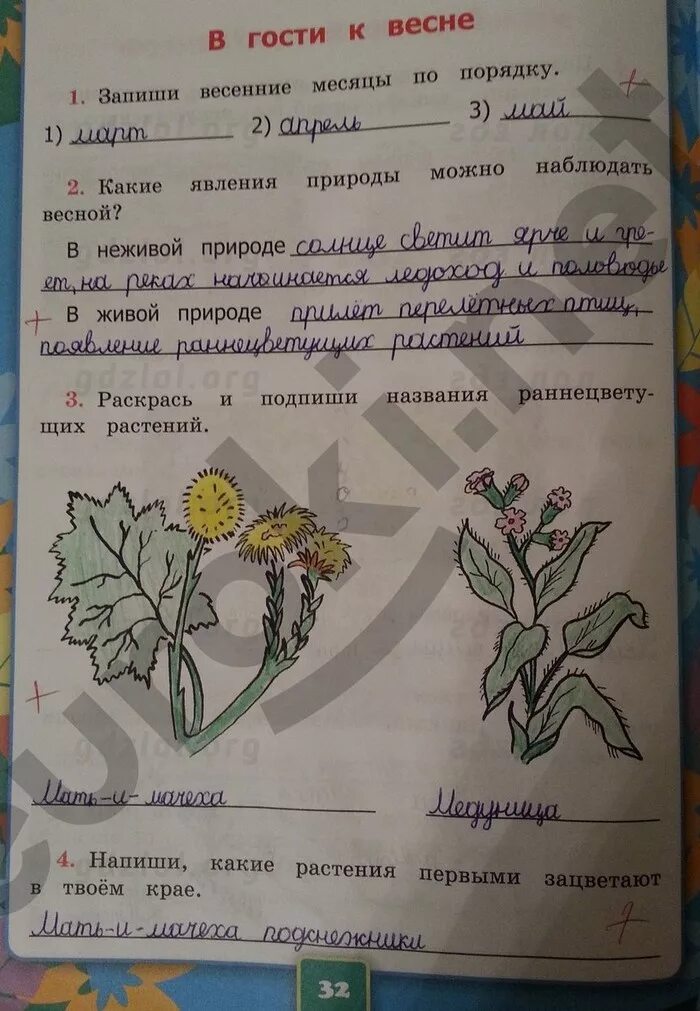 В гости к весне
1. Запиши весенние месяцы по порядку.
1) март 2) апрель 3) май
2. Какие явления природы можно наблюдать
весной?
В неживой природе солнце светит ярче и гре-
ет, на реках начинается ледоход и половодье
В живой природе прилёт перелётных птиц,
появление раннецветущих растений
3. Раскрась и подпиши названия раннецвету-
щих растений.
Мать-и-мачеха Медуница
4. Напиши, какие растения первыми зацветают
в твоём крае.
Мать-и-мачеха подснежники
32
euroki.net
gdzlol.org
gdzlol.org